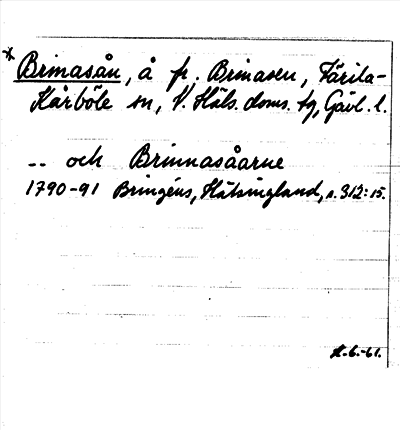 * Brinasån, å fr. Brinasen, Färila-
Kårböle sn, V. Häls. doms. tg, Gävl. l.
-- och Brinnasåarne
1790-91 Bringéus, Hälsingland, s. 312:15.
H.-6.-61.